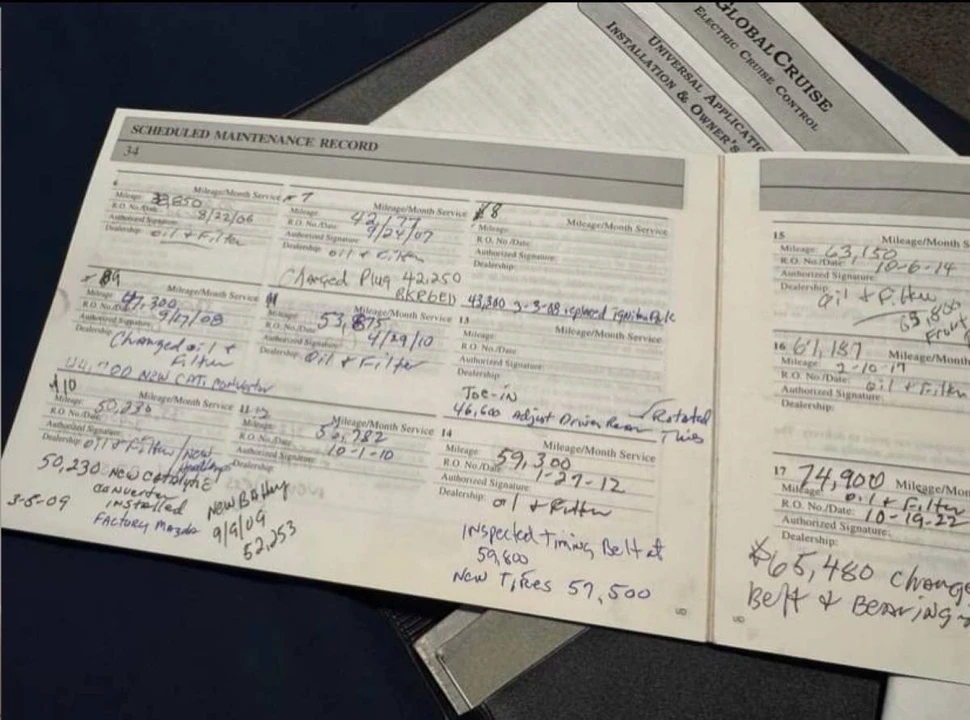 GLOBALCRUISE
ELECTRIC CRUISE CONTROL
UNIVERSAL APPLICATI
INSTALLATION & OWNER'S
SCHEDULED MAINTENANCE RECORD
34
Mileage/Month Service
Mileage: 33,850
R.O. No./Date: 8/22/06
Authorized Signature:
Dealership: oil & Filter
7
Mileage/Month Service
Mileage: 42,177
R.O. No./Date: 9/24/07
Authorized Signature:
Dealership: oil & Filter
Changed Plug 42,250
BKR6E11
8
Mileage/Month Service
Mileage:
R.O. No./Date:
Authorized Signature:
Dealership:
43,300 3-3-08 replaced ignition
9
Mileage/Month Service
Mileage: 47,300
R.O. No./Date: 9/17/08
Authorized Signature:
Dealership: Changed oil &
Filter
New Cat. Converter
Mileage/Month Service
Mileage: 53,875
R.O. No./Date: 4/29/10
Authorized Signature:
Dealership: oil & Filter
13
Mileage/Month Service
Mileage:
R.O. No./Date:
Authorized Signature:
Dealership:
Toe-in
46,600 Adjust Driver Rear
Rotated
Tires
10
Mileage/Month Service
Mileage: 50,230
R.O. No./Date:
Authorized Signature:
Dealership: oil & Filter/New
50,230 New Catalytic
Converter
3-5-09
installed
Factory Mazda
12
Mileage/Month Service
Mileage:
R.O. No./Date: 10-1-10
Authorized Signature:
Dealership:
New Battery
9/9/09
52,253
14
Mileage/Month Service
Mileage: 59,300
R.O. No./Date: 1-27-12
Authorized Signature:
Dealership: oil & Filter
Inspected Timing Belt at
59,800
New Tires 57,500
UD
15
Mileage/Month S
Mileage: 63,150
R.O. No./Date: 10-6-14
Authorized Signature:
Dealership: oil & Filter
65,800
Front
16
Mileage/Month
Mileage: 61,187
R.O. No./Date: 2-10-17
Authorized Signature: oil & Filter
Dealership:
17
Mileage/Mon
Mileage: 74,900
oil & Filter
R.O. No./Date: 10-19-22
Authorized Signature:
Dealership:
65,480 Change
Belt & Bearing
UD